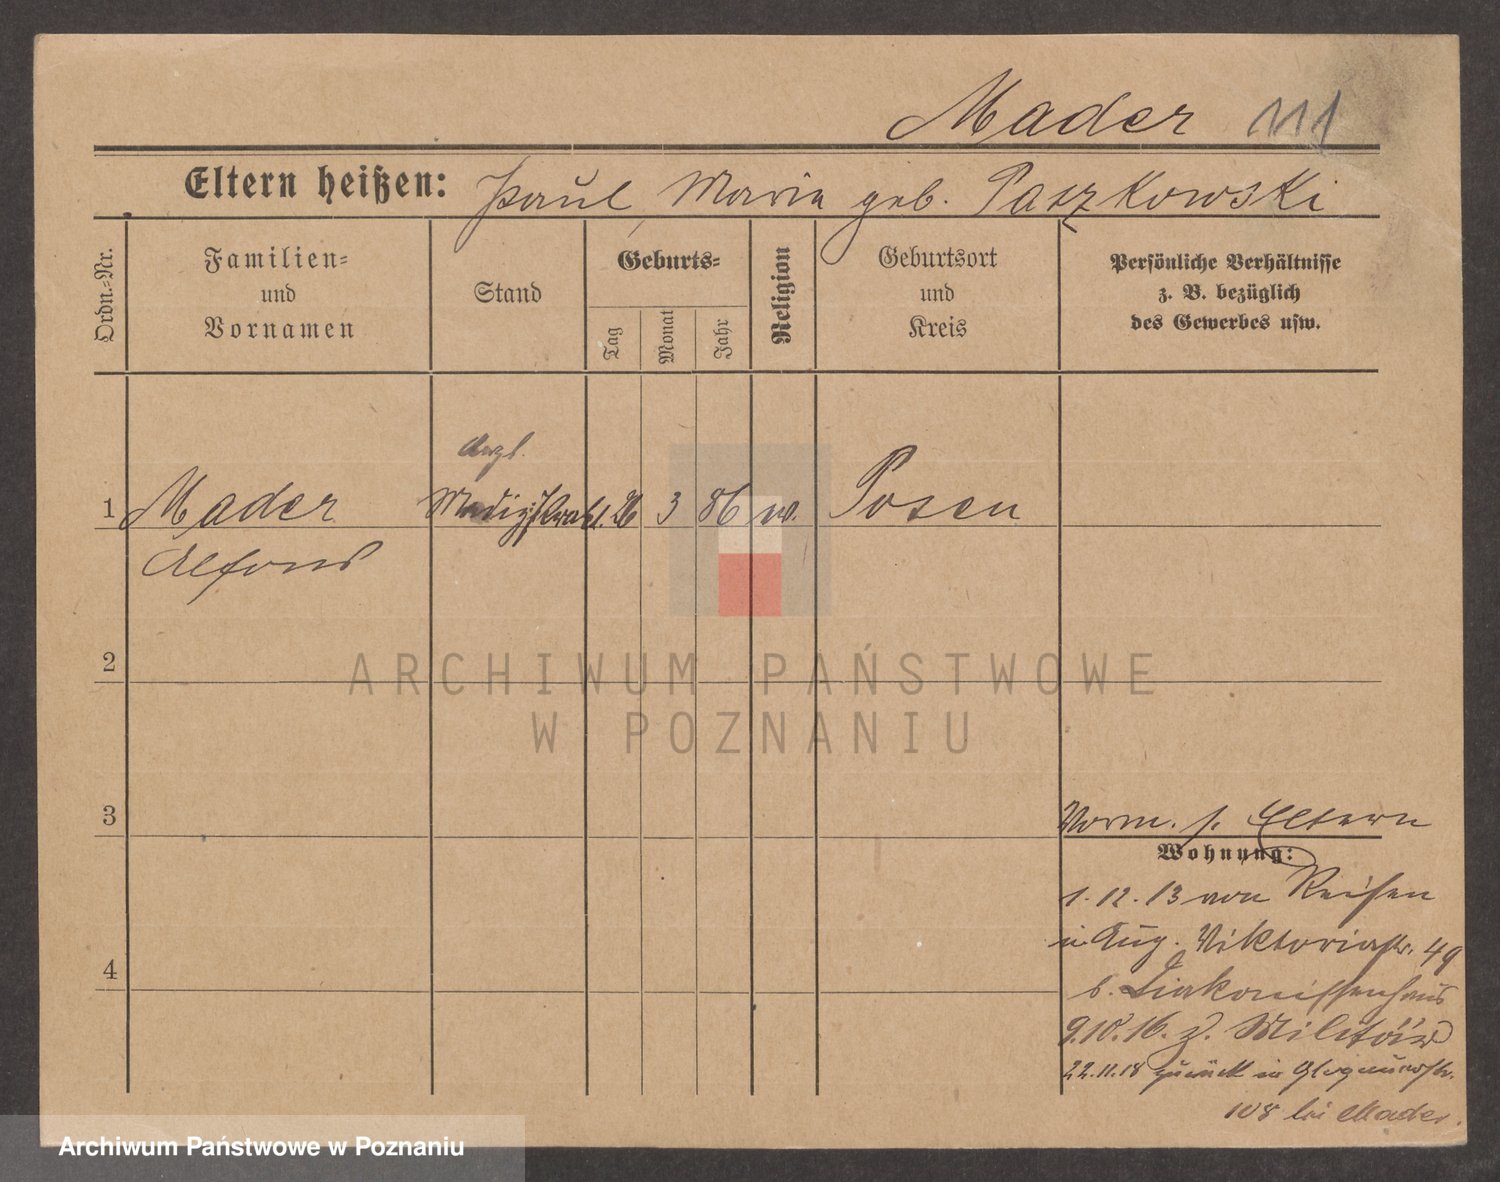 Mader 111
Eltern heißen: Paul Maria geb. Paszkowski
Ordn.-Nr.
Familien-
und
Vornamen
Stand
Geburts-
Tag
Monat
Jahr
Religion
Geburtsort
und
Kreis
Persönliche Verhältnisse
z. B. bezüglich
des Gewerbes usw.
1 Mader 26 3 86 Posen
Alfons
2
3
4
Vorm. s. Eltern
Wohnung:
1.12.13 von Reisen
in Aug. Viktoriastr. 49
b. Diakonissenhaus
9.10.16. z. Militär
22.11.18 zurück in Glogauerstr.
108 bei Mader.
ARCHIWUM PAŃSTWOWE
W POZNANIU
Archiwum Państwowe w Poznaniu